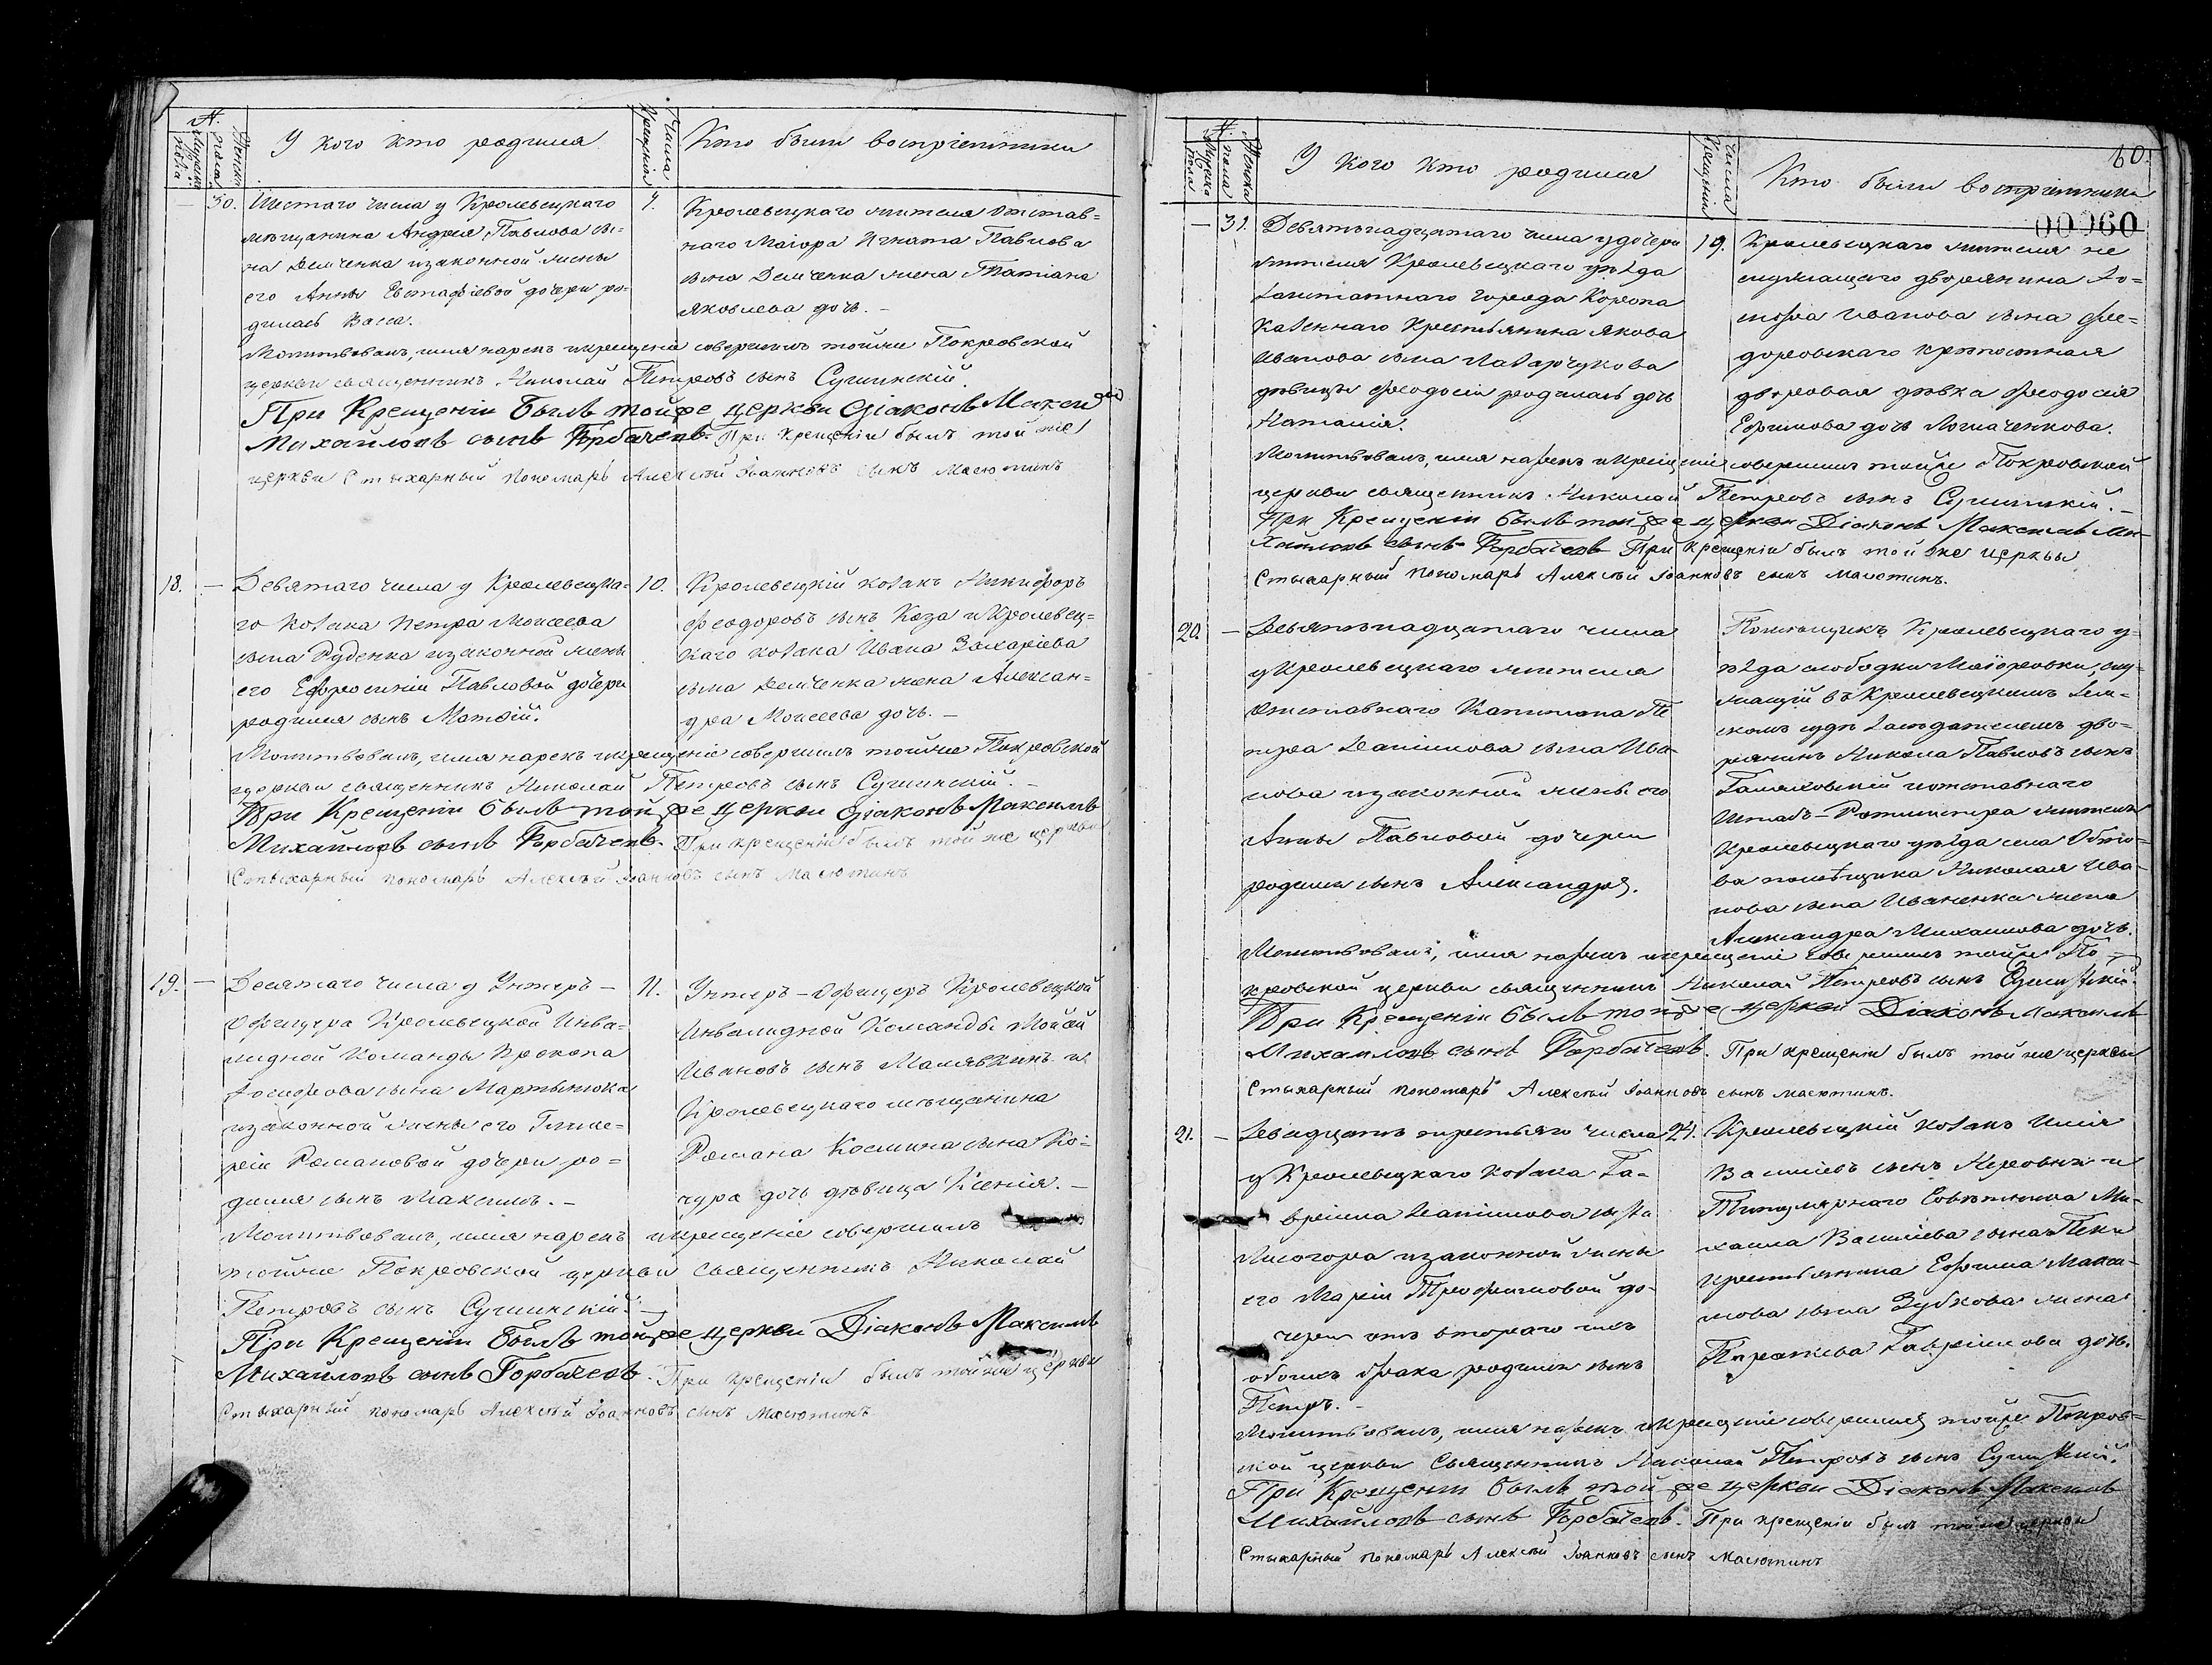 №.
Мужеска
пола
Женска
пола
У кого кто родился
Числа
Крещенія
Кто были воспріемники
30.
Шестаго числа у Кролевецкаго
мѣщанина Андрея Павлова сы=
на Демченка изаконной жены
его Анны Евстафіевой дочери ро=
дилась Васса.
7.
Кролевецкаго жителя отстав=
наго Маіора Игната Павлова
сына Демченка жена Татіана
Яковлева дочь. –
Молитвовалъ, имя нарекъ икрещеніе совершилъ тойже Покровской
церкви священникъ Николай Петровъ сынъ Сушинскій.
При Крещеніи былъ тойже церкви діаконъ Максимъ
Михайловъ сынъ Горбачевъ. При крещеніи былъ той же
церкви Стыхарный пономарь Алексѣй Іоанновъ сынъ Масютинъ
18.
Девятаго числа у Кролевецка=
го козака Петра Моисеева
сына Руденка изаконной жены
его Ефросиніи Павловой дочери
родился сынъ Матѳій.
10.
Кролевецкій козакъ Никифоръ
Феодоровъ сынъ Коза и Кролевец=
каго козака Ивана Захаріева
сына Демченка жена Алексан=
дра Моисеева дочь. –
Молитвовалъ, имя нарекъ икрещеніе совершилъ тойже Покровской
церкви священникъ Николай Петровъ сынъ Сушинскій. –
При Крещеніи былъ тойже церкви діаконъ Максимъ
Михайловъ сынъ Горбачевъ. При крещеніи былъ той же церкви
Стыхарный пономарь Алексѣй Іоанновъ сынъ Масютинъ
19.
Десятаго числа у Унтеръ –
Офицера Кролевецкой Инва=
лидной Команды Прокопа
Іосифова сына Мартынюка
изаконной жены его Глике=
ріи Романовой дочери ро=
дился сынъ Максимъ. –
11.
Унтеръ – Офицеръ Кролевецкой
Инвалидной Команды
Ивановъ сынъ Малявкинъ и
Кролевецкаго мѣщанина
Романа Космина сына Ко=
чура дочь дѣвица Ксенія. –
Молитвовалъ, имя нарекъ икрещеніе совершилъ
тойже Покровской церкви священникъ Николай
Петровъ сынъ Сушинскій. –
При Крещеніи былъ тойже церкви Діаконъ Максимъ
Михайловъ сынъ Горбачевъ. При крещеніи былъ тойже церкви
Стыхарный пономарь Алексѣй Іоанновъ сынъ Масютинъ
№.
Мужеска
пола
Женска
пола
У кого кто родился
Числа
Крещенія
Кто были воспріемники
60.
00060
31.
Девятьнадцатаго числа удочери
жителя Кролевецкаго уѣзда
Заштатнаго города Коропа
Казеннаго Крестьянина Якова
Иванова сына Лазарчукова
дѣвицы Феодосіи родилась дочь
Наталія.
19.
Кролевецкаго жителя не
служащаго дворянина Іо=
сифа Иванова сына Фео=
доровскаго крѣпостная
дворовая дѣвка Феодосія
Ефимова дочь Логваченкова.
Молитвовалъ, имя нарекъ икрещеніе совершилъ тойже Покровской
церкви священникъ Николай Петровъ сынъ Сушинскій. –
При Крещеніи былъ тойже церкви Діаконъ Максимъ Ми=
хайловъ сынъ Горбачевъ При крещеніи былъ той же церквы
Стыхарный пономарь Алексѣй Іоанновъ сынъ Масютинъ.
20.
Девятьнадцатаго числа
у Кролевецкаго жителя
отставнаго Капитана Пе
тра Даніилова сына Ива=
нова изаконной жены его
Анны Павловой дочери
родился сынъ Александръ.
Помѣщикъ Кролевецкаго у=
ѣзда слободки Маіоровки, слу=
жащій въ Кролевецкомъ Зем=
скомъ судѣ Засѣдателемъ дво=
рянинъ Никола Павловъ сынъ
иотставнаго
Штабъ – Ротмистра жителя
Кролевецкаго уѣзда села Обто=
ва помѣщика Николая Ива=
нова сына Иваненка жена
Александра Михаилова дочь.
Молитвовалъ, имя нарекъ икрещеніе совершилъ тойже По=
кровской церкви священникъ Николай Петровъ сынъ Сушинскій.
При Крещеніи былъ тойже церкви Діаконъ Максимъ
Михайловъ сынъ Горбачевъ. При крещеніи былъ той же церквы
Стыхарный пономарь Алексѣй Іоанновъ сынъ Масютинъ.
21.
Двадцать третьяго числа
у Кролевецкаго козака Га=
вріила Даніилова сына
Лисогора изаконной жены
его Маріи Трофимовой до=
чери отъ втораго ихъ
обоихъ брака родился сынъ
Петръ. –
24.
Кролевецкій козакъ Илія
Василіевъ сынъ и
Титулярнаго Совѣтника Ми=
хаила Василіева сына
крестьянина Ефима Макси=
мова сына Зубкова жена
Параскева Гавріилова дочь.
Молитвовалъ, имя нарекъ икрещеніе совершилъ тойже Покров=
ской церкви священникъ Николай Петровъ сынъ Сушинскій.
При Крещеніи былъ тойже церкви Діаконъ Максимъ
Михайловъ сынъ Горбачевъ. При крещеніи былъ тойже церкви
Стыхарный пономарь Алексѣй Іоанновъ сынъ Масютинъ